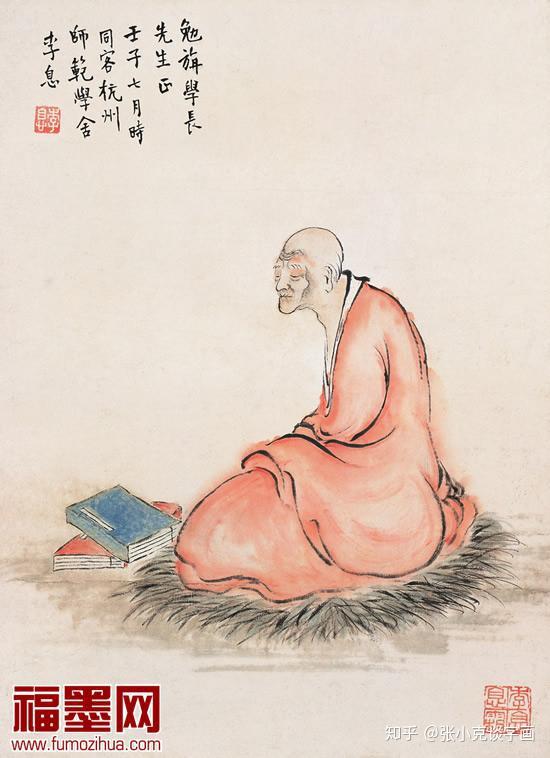 勉旃學長
先生正
壬子七月時
同客杭州
師範學舍
李息
福墨网
www.fumozihua.com
知乎 @张小克谈字画